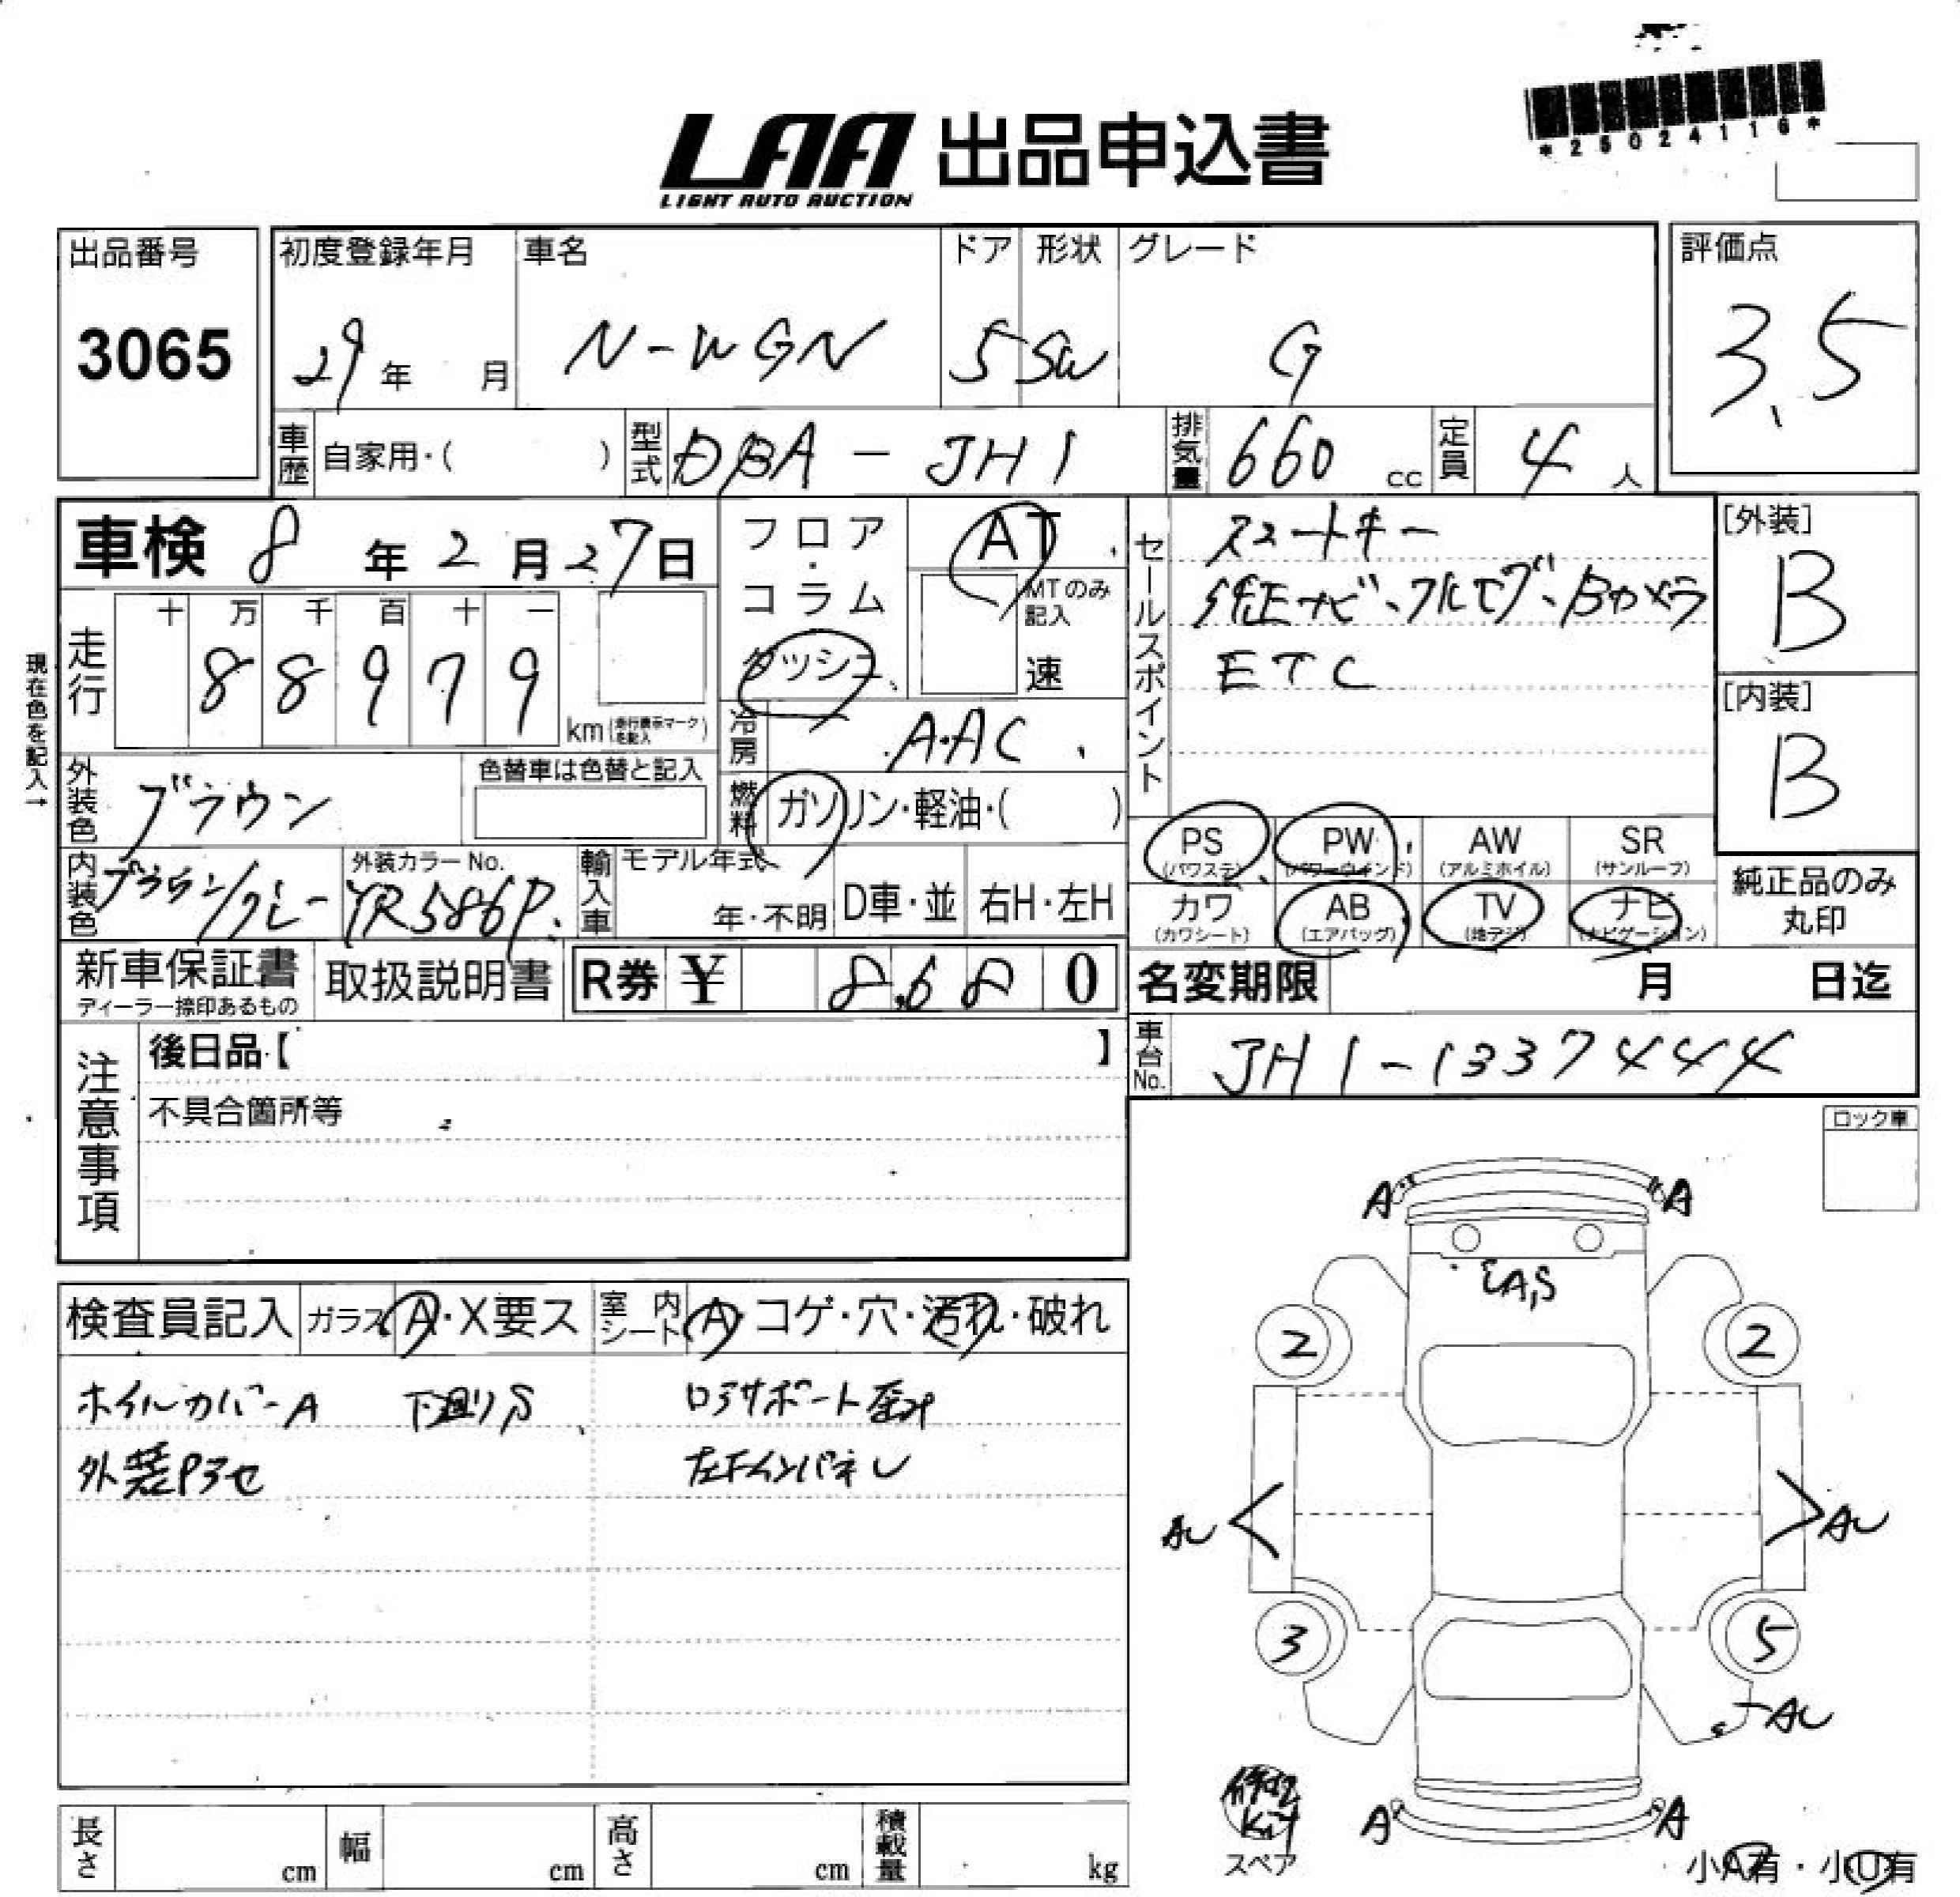 *25024116*
LAA 出品申込書
LIGHT AUTO AUCTION
出品番号
3065
初度登録年月
29 年 月
車名
N-WGN
ドア
5
形状
SW
グレード
G
評価点
3.5
車歴 自家用・( )
型式 DBA-JH1
排気量 660 cc
定員 4 人
車検 8 年 2 月 27 日
フロア・コラム
ダッシュ
AT
MTのみ記入
速
現在色を記入→
走行
十 万 千 百 十 一
8 8 9 7 9
km (走行表示マークを記入)
冷房 A.AC
燃料 ガソリン・軽油・( )
外装色 ブラウン
色替車は色替と記入
内装色 ブラウン/グレー
外装カラーNo.
YR586P.
輸入車
モデル年式
年・不明
D車・並
右H・左H
セールスポイント
スマートキー
純正ナビ、フルセグ、Bカメラ
ETC
[外装]
B
[内装]
B
PS (パワステ)
PW (パワーウインド)
AW (アルミホイル)
SR (サンルーフ)
カワ (カワシート)
AB (エアバッグ)
TV (地デジ)
ナビ (ナビゲーション)
純正品のみ
丸印
新車保証書
ディーラー捺印あるもの
取扱説明書
R券 ¥ 8,680
名変期限 月 日迄
車台No. JH1-1337444
注意事項
後日品【 】
不具合箇所等
ロック車
検査員記入
ガラス A・X要ス
室内シート A・コゲ・穴・汚れ・破れ
ホイルカバーA 下廻りS
ロアサポート
外装Pヌセ
左Fインパネ U
A A
EA,S
2 2
AU AU
3 5
AU
修理
Kit
スペア
A A
小A有・小U有
長さ cm
幅 cm
高さ cm
積載量 kg